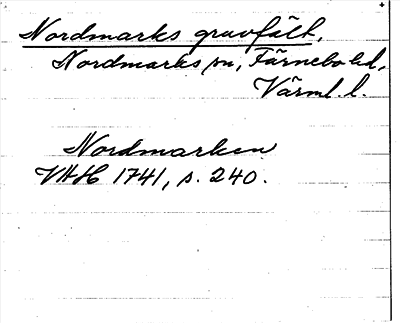 Nordmarks gruvfält,
Nordmarks sn, Färnebo hd,
Värml. l.
Nordmarken
VAH 1741, s. 240.